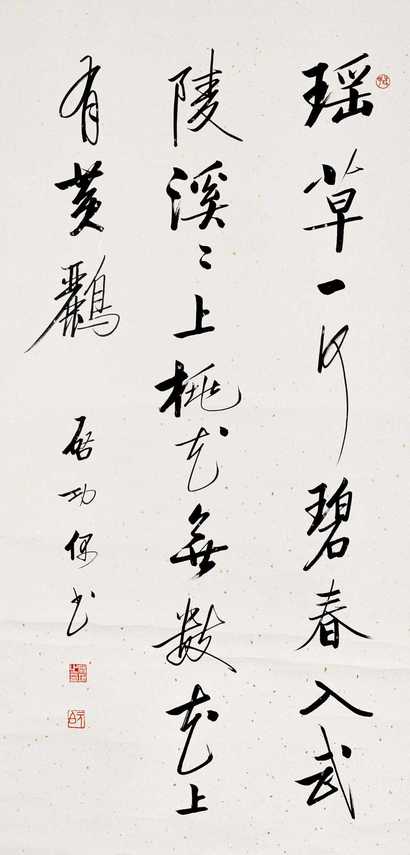 瑶草一何碧春入武
陵溪〻上桃花無數花上
有黄鸝
启功偶书